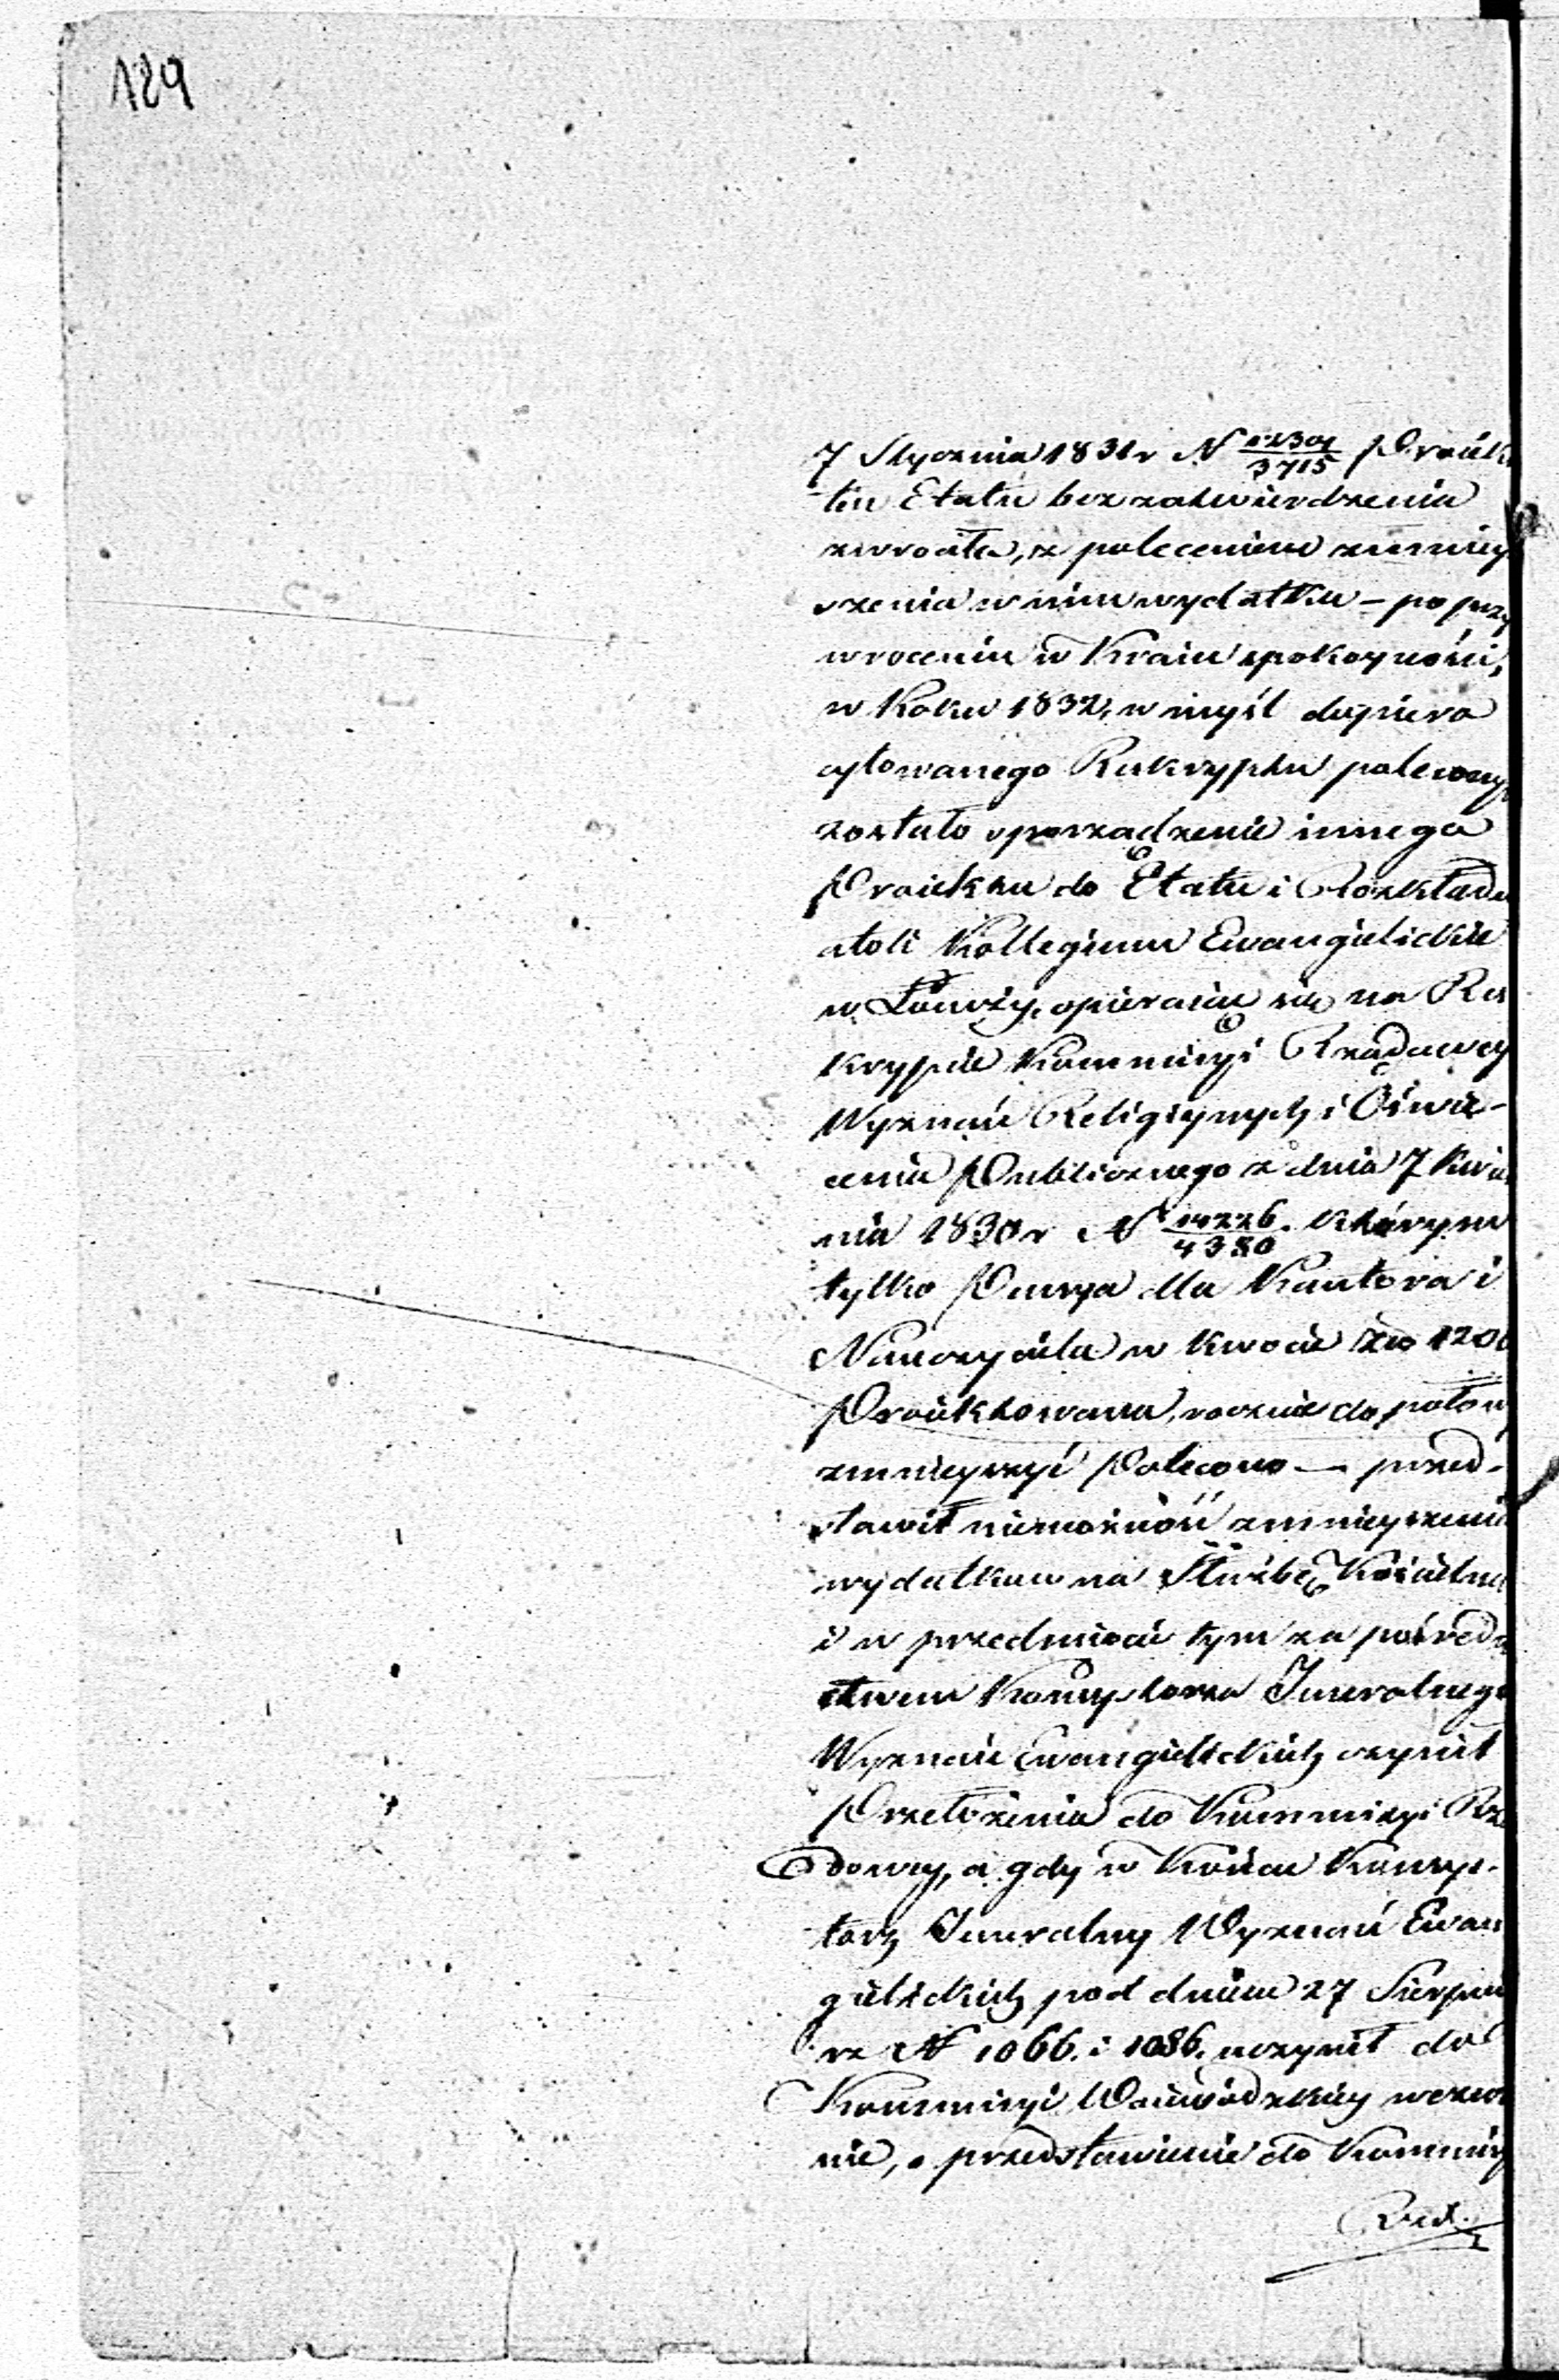 129
7 Stycznia 1831 r N 12301/3715 Proiek
tu Etatu bez zatwierdzenia
zwrociła, z poleceniem zmniey
szenia w nim wydatku – po przy
wroceniu w Kraiu spokoyności,
w Roku 1832, w myśl dopiero
cytowanego Reskryptu polecony
zostało sporządzenie innego
Proiektu do Etatu i Rozkładu
atoli Kollegium Ewangielickie
w Łomży, opieraiąc się na Res
krypcie Kommissyi Rządowey
Wyznań Religiynych i Oświe-
cenia Publicznego z dnia 7 Kwie
nia 1830 r N 14226/4380. którym
tylko Pensya dla Kantora i
Nauczyciela w kwocie Złp 1200
Proiektowana, rocznie do połow
zmnieyszyć Polecono — przed-
stawił niemożność zmnieyszenia
wydatkow na Służbę Kościelną
i w przedmiocie tym za pośredn
ctwem Konsystorza Jeneralnego
Wyznań Ewangielickich czynił
Przełożenia do Kommissyi Rzą
dowey, a gdy w Końcu Konsys-
torz Jeneralny Wyznań Ewan
gielickich pod dniem 27 Sierpnia
rz N 1066. i 1086. uczynił do
Kommissyi Woiewódzkiey wezwa
nie, o przedstawienie do Kommissy
Rząd.